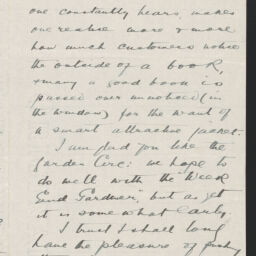 one constantly hears, makes
one realise more & more
how much customers notice
the outside of a book,
& many a good book is
passed over unnoticed (in
the window) for the want of
a smart attractive jacket.
I am glad you like the
Garden Circ: we hope to
do well with the "Week
End Gardner", but as yet
it is somewhat early.
I trust I shall long
have the pleasure of